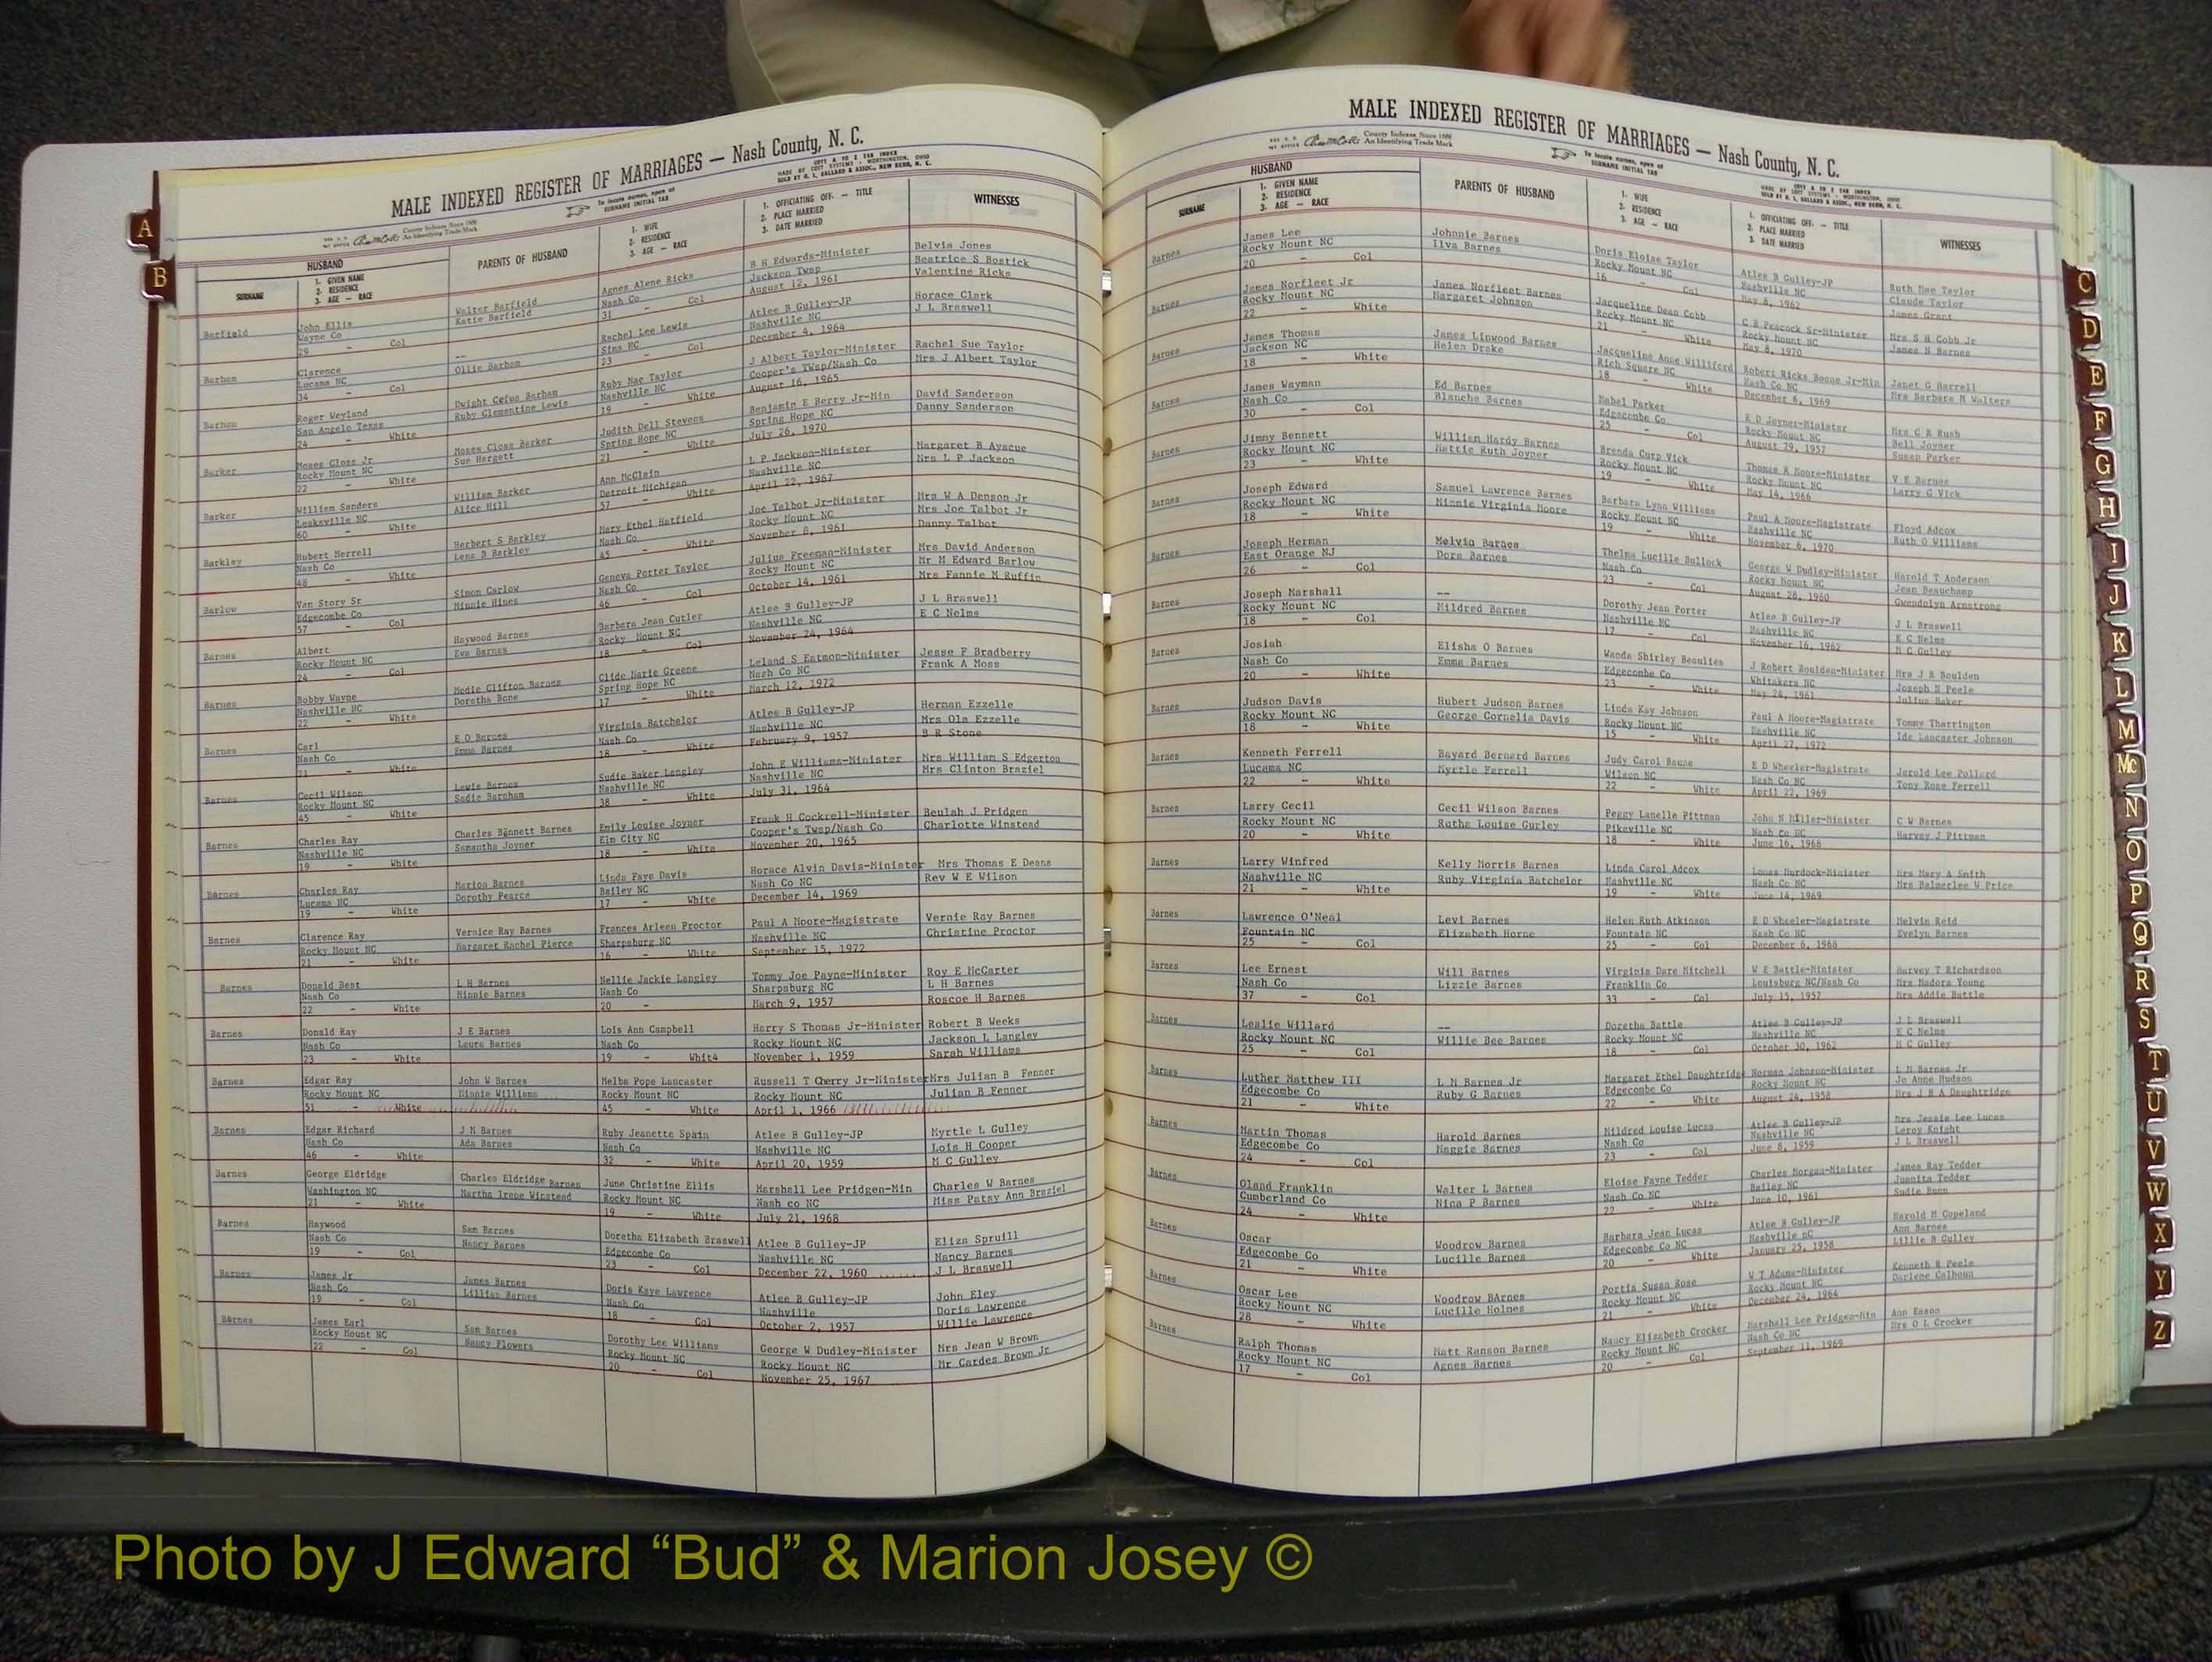 MALE INDEXED REGISTER OF MARRIAGES — Nash County, N. C.
County Indexes Since 1888
An Identifying Trade Mark
To locate names, open at
SURNAME INITIAL TAB
COTT A TO Z TAB INDEX
MADE BY COTT SYSTEMS - WORTHINGTON, OHIO
SOLD BY O. L. BALLARD & ASSOC., NEW BERN, N. C.
HUSBAND
SURNAME
1. GIVEN NAME
2. RESIDENCE
3. AGE — RACE
PARENTS OF HUSBAND
1. WIFE
2. RESIDENCE
3. AGE — RACE
1. OFFICIATING OFF. — TITLE
2. PLACE MARRIED
3. DATE MARRIED
WITNESSES
Barfield John Ellis Walter Barfield Agnes Alene Ricks B H Edwards-Minister Belvia Jones
Wayne Co Katie Barfield Nash Co Jackson Twsp Beatrice S Bostick
29 - Col 31 - Col August 12, 1961 Valentine Ricks
Barham Clarence -- Rachel Lee Lewis Atlee B Gulley-JP Horace Clark
Lucama NC Ollie Barham Sims NC Nashville NC J L Braswell
34 - Col 23 - Col December 4, 1964
Barham Roger Weyland Dwight Cefus Barham Ruby Mae Taylor J Albert Taylor-Minister Rachel Sue Taylor
San Angelo Texas Ruby Clementine Lewis Nashville NC Cooper's Twsp/Nash Co Mrs J Albert Taylor
24 - White 19 - White August 16, 1965
Barker Moses Closs Jr Moses Closs Barker Judith Dell Stevens Benjamin E Berry Jr-Min David Sanderson
Rocky Mount NC Sue Hargett Spring Hope NC Spring Hope NC Danny Sanderson
22 - White 21 - White July 26, 1970
Barker William Sanders William Barker Ann McClain L P Jackson-Minister Margaret B Ayscue
Leaksville NC Alice Hill Detroit Michigan Nashville NC Mrs L P Jackson
60 - White 57 - White April 22, 1967
Barkley Hubert Merrell Herbert S Barkley Mary Ethel Hatfield Joe Talbot Jr-Minister Mrs W A Denson Jr
Nash Co Lena B Barkley Nash Co Rocky Mount NC Mrs Joe Talbot Jr
48 - White 45 - White November 8, 1961 Danny Talbot
Barlow Van Story Sr Simon Carlow Geneva Porter Taylor Julius Freeman-Minister Mrs David Anderson
Edgecombe Co Minnie Hines Nash Co Rocky Mount NC Mr M Edward Barlow
57 - Col 46 - Col October 14, 1961 Mrs Fannie M Ruffin
Barnes Albert Haywood Barnes Barbara Jean Cutler Atlee B Gulley-JP J L Braswell
Rocky Mount NC Eva Barnes Rocky Mount NC Nashville NC E C Nelms
24 - Col 18 - Col November 24, 1964
Barnes Bobby Wayne Medie Clifton Barnes Clide Marie Greene Leland S Eatmon-Minister Jesse F Bradberry
Nashville NC Doretha Bone Spring Hope NC Nash Co NC Frank A Moss
22 - White 17 - White March 12, 1972
Barnes Carl E O Barnes Virginia Batchelor Atlee B Gulley-JP Herman Ezzelle
Nash Co Emma Barnes Nash Co Nashville NC Mrs Ola Ezzelle
21 - White 18 - White February 9, 1957 B R Stone
Barnes Cecil Wilson Lewis Barnes Sudie Baker Langley John E Williams-Minister Mrs William S Edgerton
Rocky Mount NC Sadie Barnham Nashville NC Nashville NC Mrs Clinton Braziel
45 - White 38 - White July 31, 1964
Barnes Charles Ray Charles Bennett Barnes Emily Louise Joyner Frank H Cockrell-Minister Beulah J Pridgen
Nashville NC Samantha Joyner Elm City NC Cooper's Twsp/Nash Co Charlotte Winstead
19 - White 18 - White November 20, 1965
Barnes Charles Ray Marion Barnes Linda Faye Davis Horace Alvin Davis-Minister Mrs Thomas E Deans
Lucama NC Dorothy Pearce Bailey NC Nash Co NC Rev W E Wilson
19 - White 17 - White December 14, 1969
Barnes Clarence Ray Vernice Ray Barnes Frances Arleen Proctor Paul A Moore-Magistrate Vernie Ray Barnes
Rocky Mount NC Margaret Rachel Pierce Sharpsburg NC Nashville NC Christine Proctor
21 - White 16 - White September 15, 1972
Barnes Donald Best L H Barnes Nellie Jackie Langley Tommy Joe Payne-Minister Roy E McCarter
Nash Co Minnie Barnes Nash Co Sharpsburg NC L H Barnes
22 - White 20 - March 9, 1957 Roscoe H Barnes
Barnes Donald Ray J E Barnes Lois Ann Campbell Harry S Thomas Jr-Minister Robert B Weeks
Nash Co Laura Barnes Nash Co Rocky Mount NC Jackson L Langley
23 - White 19 - Whit4 November 1, 1959 Sarah Williams
Barnes Edgar Ray John W Barnes Melba Pope Lancaster Russell T Cherry Jr-Minister Mrs Julian B Fenner
Rocky Mount NC Minnie Williams Rocky Mount NC Rocky Mount NC Julian B Fenner
51 - White 45 - White April 1, 1966
Barnes Edgar Richard J M Barnes Ruby Jeanette Spain Atlee B Gulley-JP Myrtle L Gulley
Nash Co Ada Barnes Nash Co Nashville NC Lois H Cooper
46 - White 32 - White April 20, 1959 M C Gulley
Barnes George Eldridge Charles Eldridge Barnes June Christine Ellis Marshall Lee Pridgen-Min Charles W Barnes
Washington NC Martha Irene Winstead Rocky Mount NC Nash co NC Miss Patsy Ann Braziel
21 - White 19 - White July 21, 1968
Barnes Haywood Sam Barnes Doretha Elizabeth Braswell Atlee B Gulley-JP Eliza Spruill
Nash Co Nancy Barnes Edgecombe Co Nashville NC Nancy Barnes
19 - Col 23 - Col December 22, 1960 J L Braswell
Barnes James Jr James Barnes Doris Kaye Lawrence Atlee B Gulley-JP John Eley
Nash Co Lillian Barnes Nash Co Nashville Doris Lawrence
19 - Col 18 - Col October 2, 1957 Willie Lawrence
Barnes James Earl Sam Barnes Dorothy Lee Williams George W Dudley-Minister Mrs Jean W Brown
Rocky Mount NC Nancy Flowers Rocky Mount NC Rocky Mount NC Mr Cardes Brown Jr
22 - Col 20 - Col November 25, 1967
MALE INDEXED REGISTER OF MARRIAGES — Nash County, N. C.
County Indexes Since 1888
An Identifying Trade Mark
To locate names, open at
SURNAME INITIAL TAB
COTT A TO Z TAB INDEX
MADE BY COTT SYSTEMS - WORTHINGTON, OHIO
SOLD BY O. L. BALLARD & ASSOC., NEW BERN, N. C.
HUSBAND
SURNAME
1. GIVEN NAME
2. RESIDENCE
3. AGE — RACE
PARENTS OF HUSBAND
1. WIFE
2. RESIDENCE
3. AGE — RACE
1. OFFICIATING OFF. — TITLE
2. PLACE MARRIED
3. DATE MARRIED
WITNESSES
Barnes James Lee Johnnie Barnes Doris Eloise Taylor Atlee B Gulley-JP Ruth Mae Taylor
Rocky Mount NC Ilva Barnes Rocky Mount NC Nashville NC Claude Taylor
20 - Col 16 - Col May 8, 1962 James Grant
Barnes James Norfleet Jr James Norfleet Barnes Jacqueline Dean Cobb C B Peacock Sr-Minister Mrs S H Cobb Jr
Rocky Mount NC Margaret Johnson Rocky Mount NC Rocky Mount NC James N Barnes
22 - White 21 - White May 8, 1970
Barnes James Thomas James Linwood Barnes Jacqueline Anne Williford Robert Ricks Boone Jr-Min Janet G Harrell
Jackson NC Helen Drake Rich Square NC Nash Co NC Mrs Barbara M Walters
18 - White 18 - White December 6, 1969
Barnes James Wayman Ed Barnes Mabel Parker E D Joyner-Minister Mrs C R Rush
Nash Co Blanche Barnes Edgecombe Co Rocky Mount NC Bell Joyner
30 - Col 25 - Col August 29, 1957 Susan Parker
Barnes Jimmy Bennett William Hardy Barnes Brenda Curp Vick Thomas R Moore-Minister V E Barnes
Rocky Mount NC Mattie Ruth Joyner Rocky Mount NC Rocky Mount NC Larry G Vick
23 - White 19 - White May 14, 1966
Barnes Joseph Edward Samuel Lawrence Barnes Barbara Lynn Williams Paul A Moore-Magistrate Floyd Adcox
Rocky Mount NC Minnie Virginia Moore Rocky Mount NC Nashville NC Ruth O Williams
18 - White 19 - White November 6, 1970
Barnes Joseph Herman Melvin Barnes Thelma Lucille Bullock George W Dudley-Minister Harold T Anderson
East Orange NJ Dora Barnes Nash Co Rocky Mount NC Jean Beauchamp
26 - Col 23 - Col August 28, 1960 Gwendolyn Armstrong
Barnes Joseph Marshall -- Dorothy Jean Porter Atlee B Gulley-JP J L Braswell
Rocky Mount NC Mildred Barnes Nashville NC Nashville NC E C Nelms
18 - Col 17 - Col November 16, 1962 M C Gulley
Barnes Josiah Elisha O Barnes Wanda Shirley Beaulies J Robert Boulden-Minister Mrs J R Boulden
Nash Co Emma Barnes Edgecombe Co Whitakers NC Joseph N Peele
20 - White 23 - White May 24, 1961 Julius Baker
Barnes Judson Davis Hubert Judson Barnes Linda Kay Johnson Paul A Moore-Magistrate Tommy Tharrington
Rocky Mount NC George Cornelia Davis Rocky Mount NC Nashville NC Ida Lancaster Johnson
18 - White 15 - White April 27, 1972
Barnes Kenneth Ferrell Bayard Bernard Barnes Judy Carol Bause E D Wheeler-Magistrate Jerold Lee Pollard
Lucama NC Myrtle Ferrell Wilson NC Nash Co NC Tony Rose Ferrell
22 - White 22 - White April 22, 1969
Barnes Larry Cecil Cecil Wilson Barnes Peggy Lanelle Pittman John N Miller-Minister C W Barnes
Rocky Mount NC Rutha Louise Gurley Pikeville NC Nash Co NC Harvey J Pittman
20 - White 18 - White June 16, 1968
Barnes Larry Winfred Kelly Morris Barnes Linda Carol Adcox Lomas Murdock-Minister Mrs Mary A Smith
Nashville NC Ruby Virginia Batchelor Nashville NC Nash Co NC Mrs Palmerlee W Price
21 - White 19 - White June 14, 1969
Barnes Lawrence O'Neal Levi Barnes Helen Ruth Atkinson E D Wheeler-Magistrate Melvin Reid
Fountain NC Elizabeth Horne Fountain NC Nash Co NC Evelyn Barnes
25 - Col 25 - Col December 6, 1968
Barnes Lee Ernest Will Barnes Virginia Dare Mitchell W E Battle-Minister Harvey T Richardson
Nash Co Lizzie Barnes Franklin Co Louisburg NC/Nash Co Mrs Madora Young
37 - Col 33 - Col July 15, 1957 Mrs Addie Battle
Barnes Leslie Willard -- Doretha Battle Atlee B Gulley-JP J L Braswell
Rocky Mount NC Willie Bee Barnes Rocky Mount NC Nashville NC E C Nelms
25 - Col 18 - Col October 30, 1962 M C Gulley
Barnes Luther Matthew III L M Barnes Jr Margaret Ethel Daughtridge Norman Johnson-Minister L M Barnes Jr
Edgecombe Co Ruby G Barnes Edgecombe Co Rocky Mount NC Jo Anne Hudson
21 - White 22 - White August 24, 1958 Mrs J B A Daughtridge
Barnes Martin Thomas Harold Barnes Mildred Louise Lucas Atlee B Gulley-JP Mrs Jessie Lee Lucas
Edgecombe Co Maggie Barnes Nash Co Nashville NC Leroy Knight
24 - Col 23 - Col June 8, 1959 J L Braswell
Barnes Oland Franklin Walter L Barnes Eloise Fayne Tedder Charles Morgan-Minister James Ray Tedder
Cumberland Co Nina P Barnes Nash Co NC Bailey NC Juanita Tedder
24 - White 22 - White June 10, 1961 Sudie Bunn
Barnes Oscar Woodrow Barnes Barbara Jean Lucas Atlee B Gulley-JP Harold M Copeland
Edgecombe Co Lucille Barnes Edgecombe Co NC Nashville nC Ann Barnes
21 - White 20 - White January 25, 1958 Lillie B Gulley
Barnes Oscar Lee Woodrow BArnes Portia Susan Rose W T Adams-Minister Kenneth R Peele
Rocky Mount NC Lucille Holmes Rocky Mount NC Rocky Mount NC Darlene Calhoun
28 - White 21 - White December 24, 1964
Barnes Ralph Thomas Matt Ranson Barnes Nancy Elizabeth Crocker Marshall Lee Pridgen-Min Ann Eason
Rocky Mount NC Agnes Barnes Rocky Mount NC Nash Co NC Mrs O L Crocker
17 - Col 20 - Col September 11, 1969
A
B
C
D
E
F
G
H
I
J
K
L
M
Mc
N
O
P
Q
R
S
T
U
V
W
X
Y
Z
Photo by J Edward “Bud” & Marion Josey ©